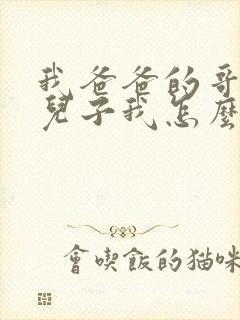 我爸爸的哥
兒子我怎麼
會喫飯的猫咪